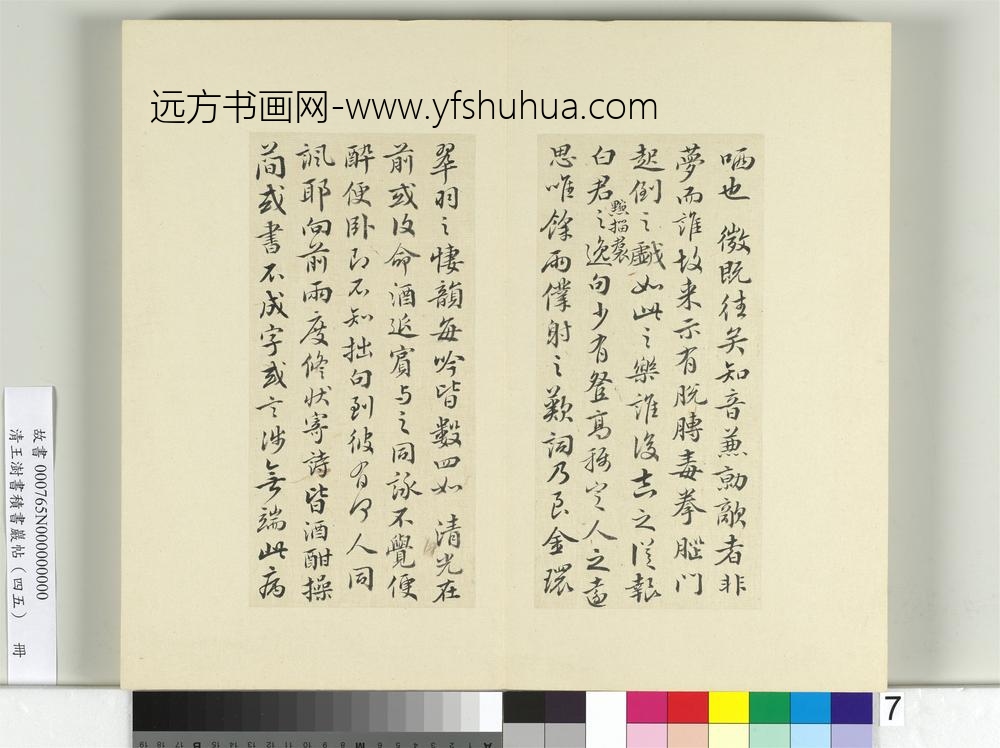 远方书画网-www.yfshuhua.com
哂也 微既往矣知音兼勍敵者非
夢而誰故来示有脱膊毒拳腦門
起倒之戲如此之樂誰復知之從報
白君之逸句少有登髙稱定人之遠
思唯餘兩僕射之歎詞乃至金環
翠羽之悽韻每吟皆數四如 清光在
前或復命酒延賓与之同詠不覺便
醉便臥即不知拙句到彼有何人同
諷耶向前兩度修状寄詩皆酒酣操
簡或書不成字或言涉無端此病
故書 000765N000000000
清王澍書積書巖帖（四五） 冊
7